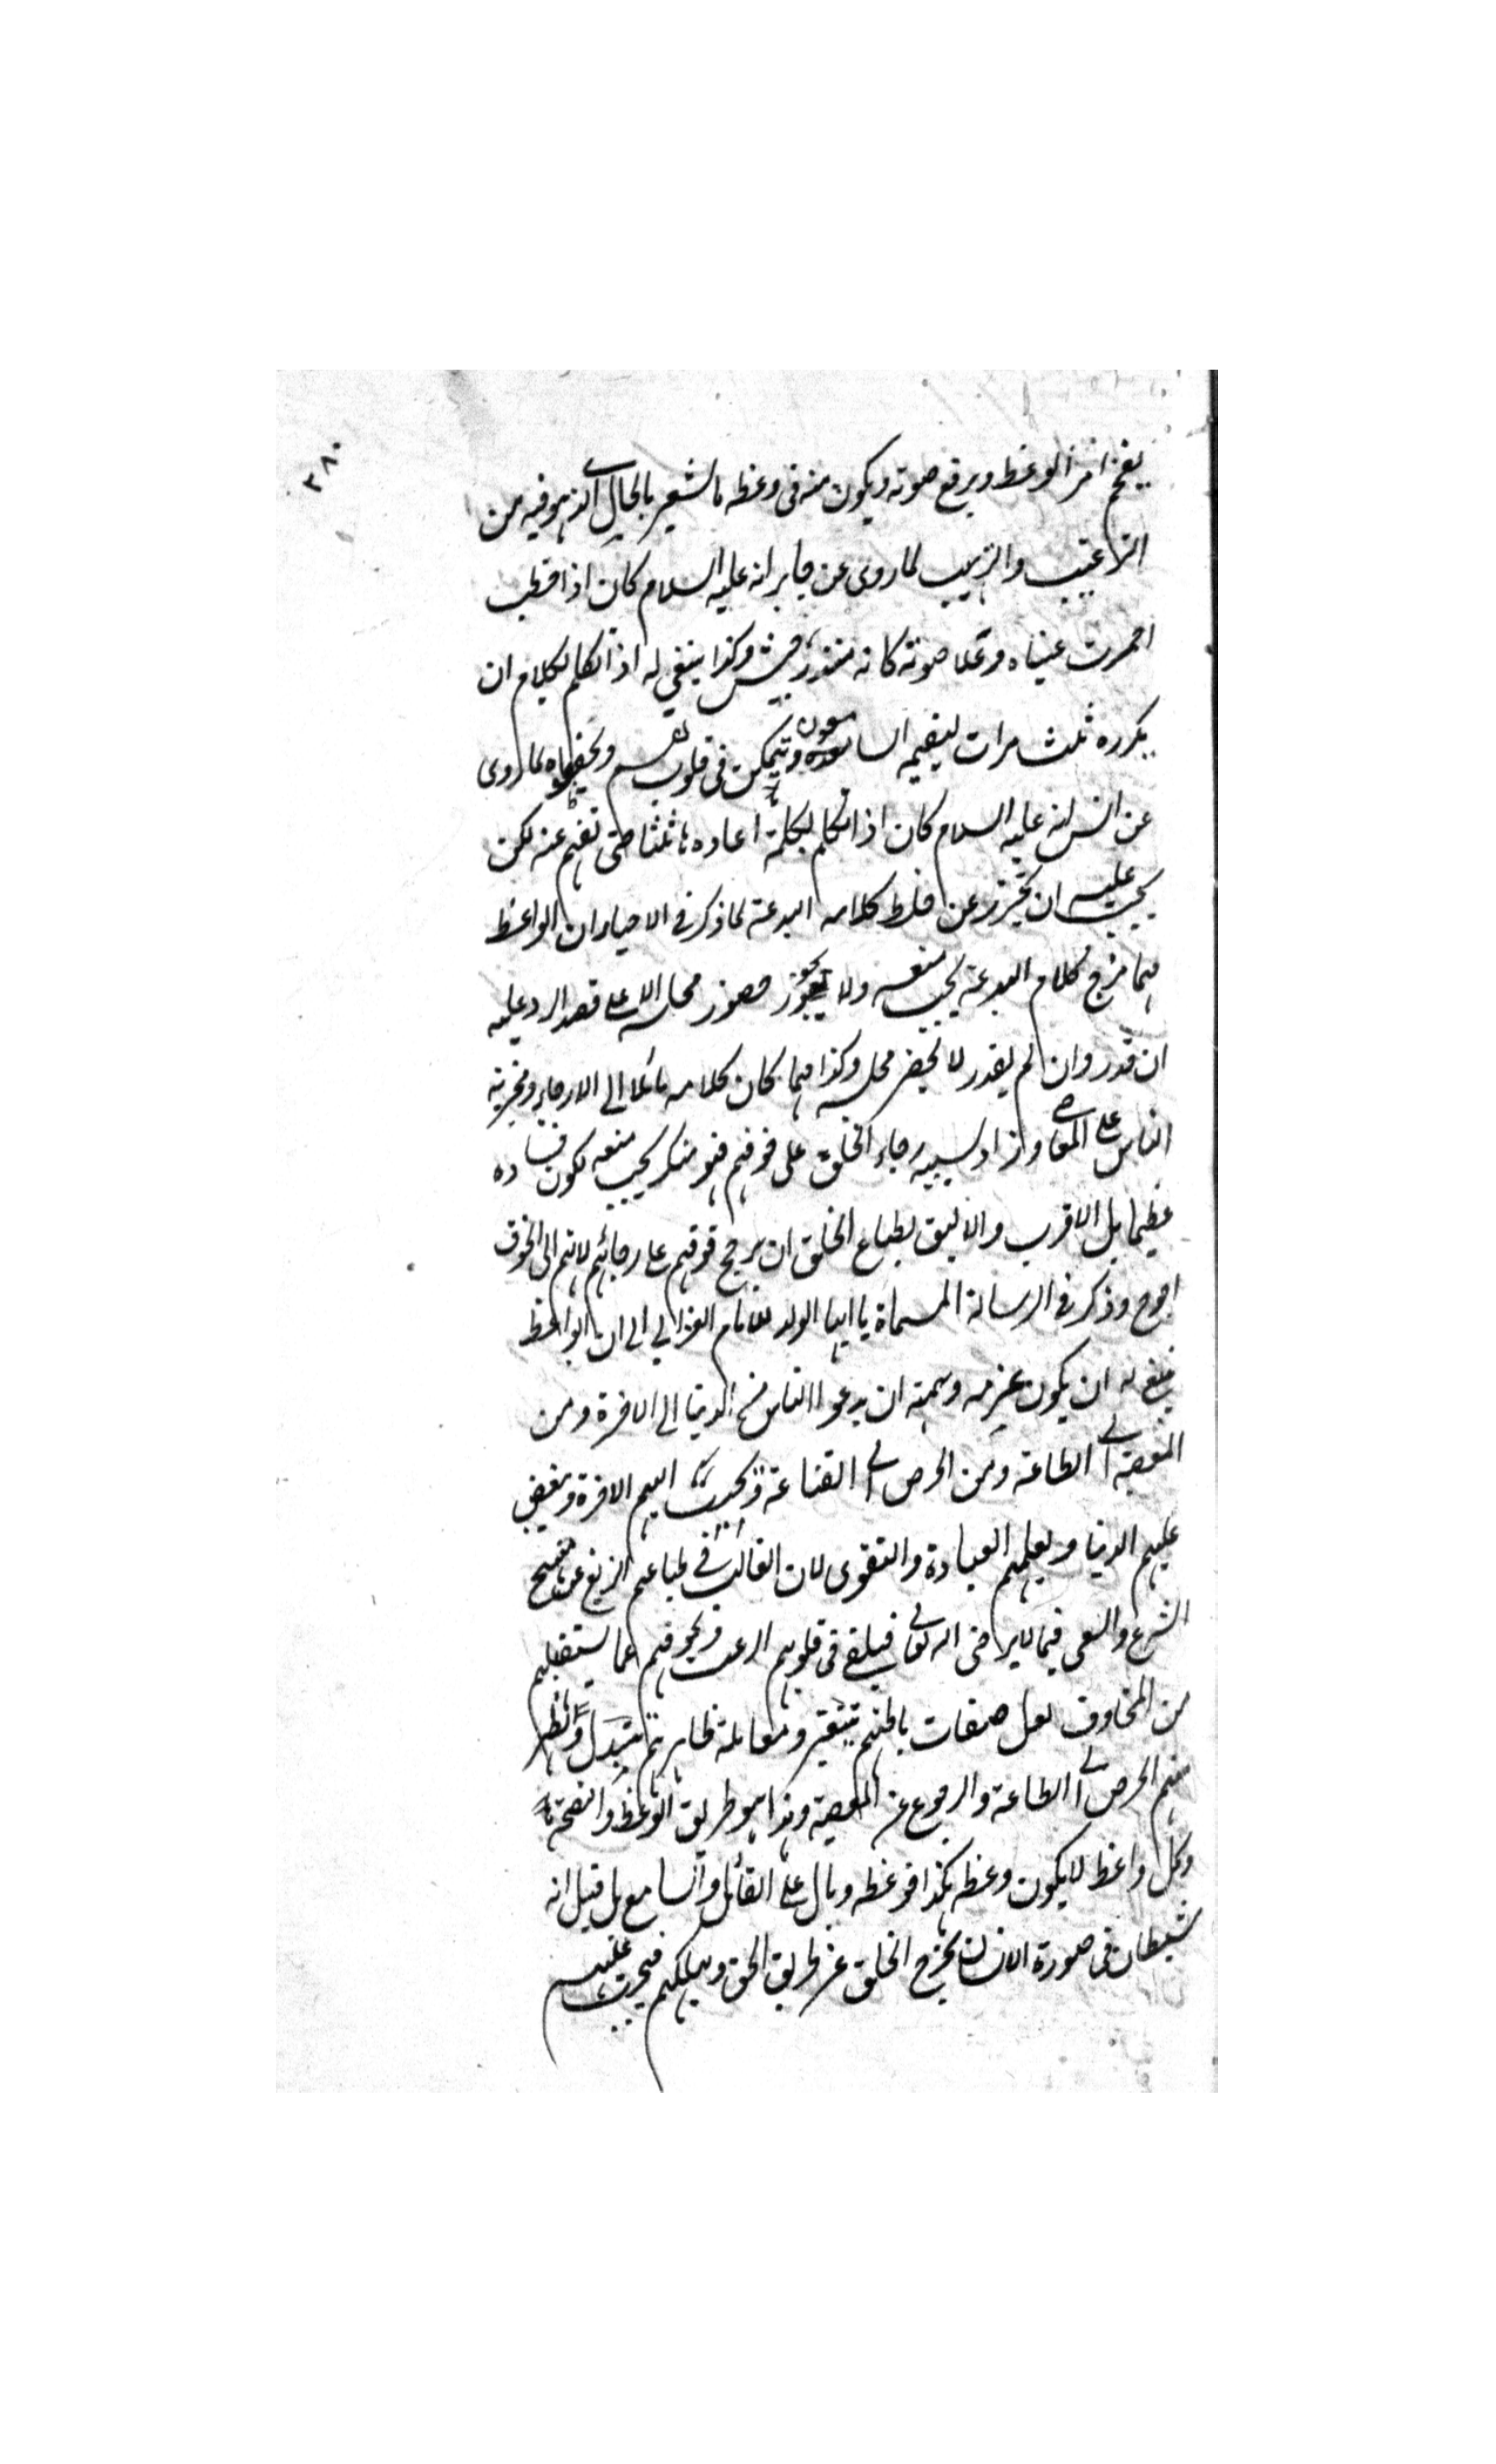 ٣٨٠
يفخم امر الوعظ ويرفع صوته ويكون منه فى وعظه ما يشعر بالحال الذى هو فيه من
الترغيب والترهيب لما روى عن جابر انه عليه السلام كان اذا خطب
احمرت عيناه وعلا صوته كانه منذر جيش وكذا ينبغي له اذا تكلم بكلام ان
يكرره ثلث مرات ليفهمه السامعون ويتمكن فى قلوبهم ويحفظوه لما روى
عن انس انه عليه السلام كان اذا تكلم بكلمة اعادها ثلثا حتى تفهم عنه لكن
يجب عليه ان يحترز عن خلط كلامه البدعة لما ذكر فى الاحياء ان الواعظ
مهما مزج كلام البدعة يجب منعه ولا يجوز حضور مجلسه الا على قصد الرد عليه
ان قدر وان لم يقدر لا يحضر مجلسه وكذا مهما كان كلامه مائلا الى الارجاء وتجرية
الناس على المعاصى وزاد بسببه رجاء الخلق على خوفهم فهو منكر يجب منعه لكون فساده
عظيما بل الاقرب والاليق بطباع الخلق ان يرجح خوفهم على رجائهم لانهم الى الخوف
احوج وذكر فى الرسالة المسماة يا ايها الولد للامام الغزالي الى ان الواعظ
ينبغى له ان يكون عزمه وهمته ان يدعوا الناس من الدنيا الى الاخرة ومن
المعصية الى الطاعة ومن الحرص الى القناعة ويحبب اليهم الاخرة ويبغض
عليهم الدنيا ويعلمهم العبادة والتقوى لان الغالب فى طباعهم الزيغ عن منهج
الشرع والسعى فيما لا يرضى الله تعالى فيلقى فى قلوبهم الرعب ويخوفهم عما يستقبلهم
من المخاوف لعل صفات باطنهم تتغير ومعاملة ظاهرهم تتبدل ويظهر
منهم الحرص الى الطاعة والرجوع عن المعصية وهذا هو طريق الوعظ والنصحة
وكل واعظ لا يكون وعظه هكذا فوعظه وبال على القائل والسامع بل قيل انه
شيطان فى صورة الانسان يخرج الخلق عن طريق الحق ويهلكهم فيجب عليهم